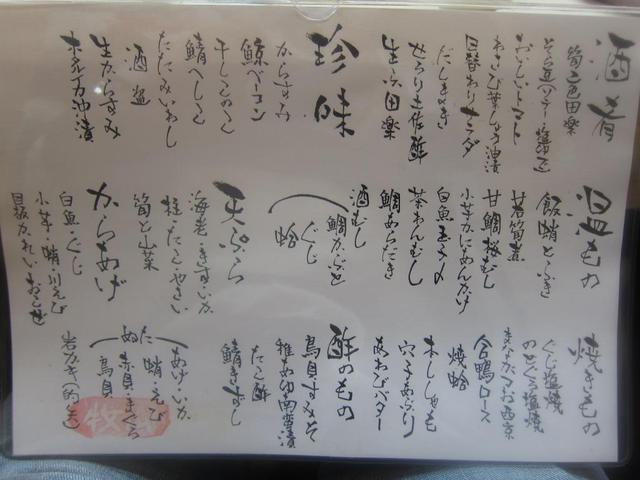 酒肴
筍三色田楽
そら豆(バター・塩焼)
おいしいトマト
わさび葉しょうゆ漬
日替わりサラダ
だしまき
せろり土佐酢
生ふ田楽
珍味
からすみ
鯨ベーコン
干しこのこ
鯖へしこ
たたみいわし
酒盗
生からすみ
ホタルイカ沖漬
温もの
飯蛸とふき
若筍煮
甘鯛桜むし
小芋かにあんかけ
白魚玉〆
茶わんむし
鯛あらたき
酒むし
鯛かぶと
ぐじ
蛤
天ぷら
海老・きす・いか
柱・たこ・やさい
筍と山菜
からあげ
白魚・ぐじ
小芋・蛸・川えび
目板かれい・おこぜ
焼きもの
ぐじ塩焼
のどぐろ塩焼
まながつお西京
合鴨ロース
焼蛤
本ししゃも
穴子あぶり
あわびバター
酢のもの
鳥貝すみそ
稚あゆ南蛮漬
たこ酢
鯖きずし
ぬた
あげ・いか
蛸・えび
赤貝・まぐろ
鳥貝
岩がき(的矢)